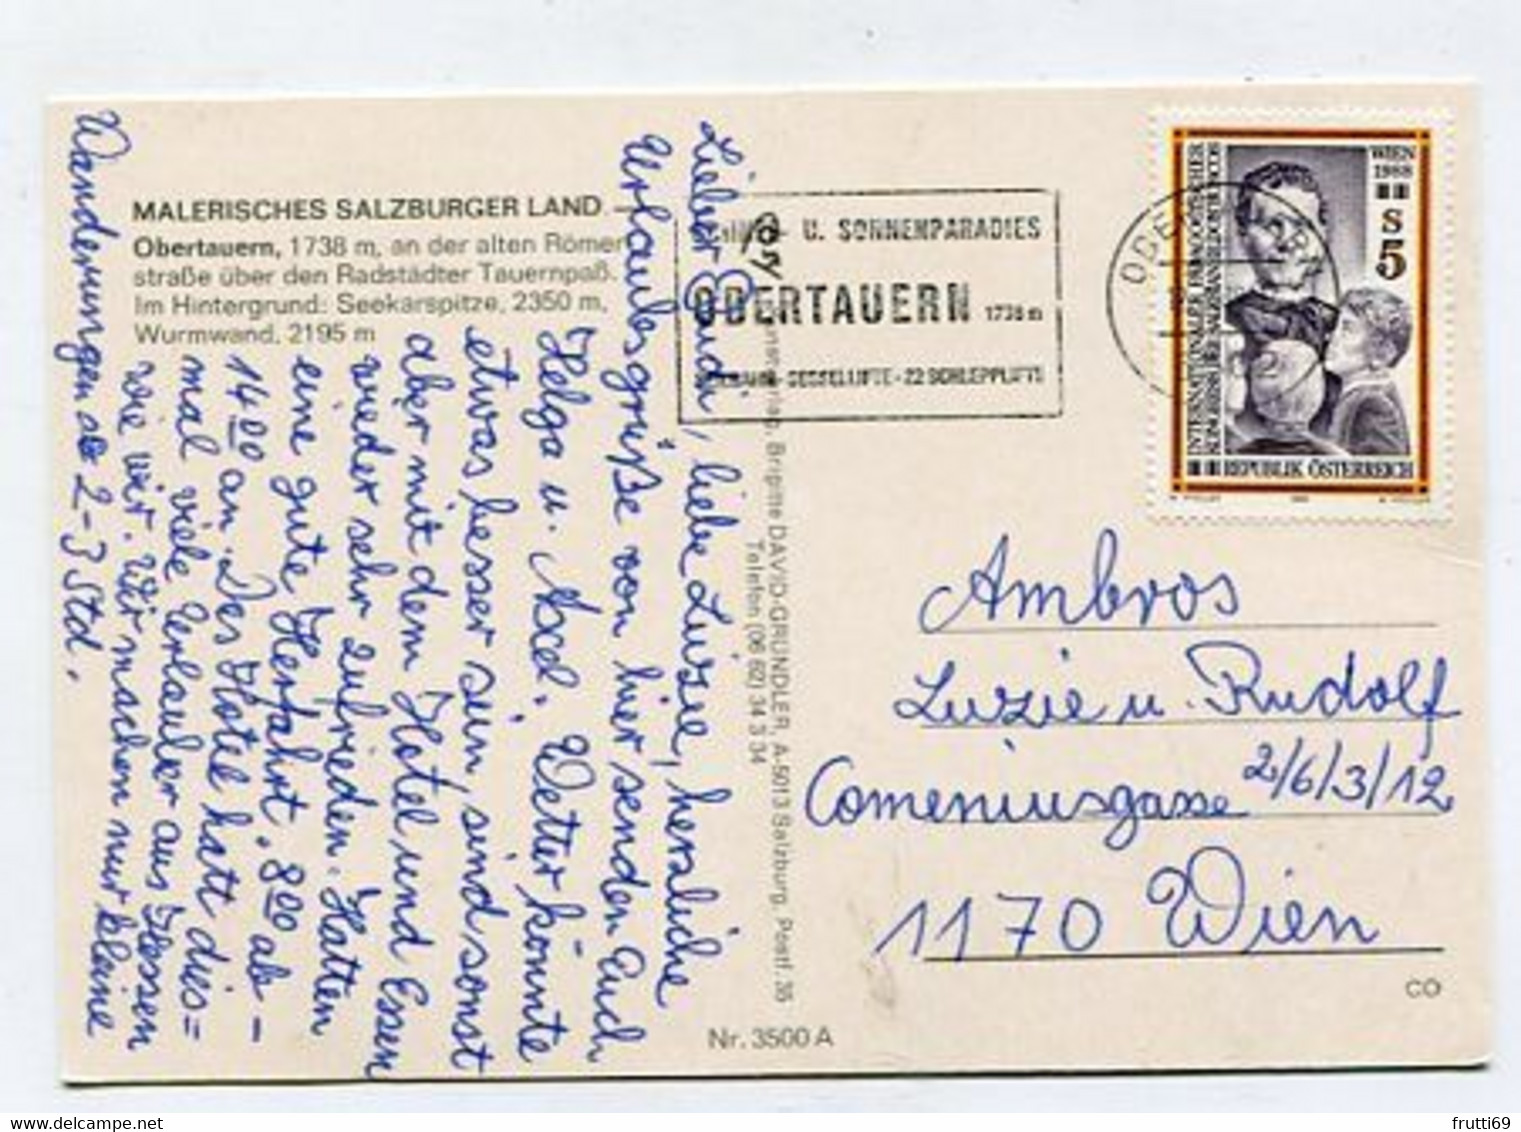 MALERISCHES SALZBURGER LAND
Obertauern, 1738 m, an der alten Römer
straße über den Radstädter Tauernpaß.
Im Hintergrund: Seekarspitze, 2350 m,
Wurmwand, 2195 m
Lieber Rudi, liebe Luzie, herzliche
Urlaubsgrüße von hier senden Euch
Helga u. Axel. Wetter könnte
etwas besser sein, sind sonst
aber mit dem Hotel und Essen
wieder sehr zufrieden. Hatten
eine gute Herfahrt. 8 00 ab –
14 00 an. Das Hotel hatt dies=
mal viele Urlauber aus Hessen
wie wir. Wir machen nur kleine
Wanderungen 2–3 Std.
U. SONNENPARADIES
OBERTAUERN 1738 m
SESSELLIFTE - 22 SCHLEPPLIFTE
INTERNATIONALER PÄDAGOGISCHER
KONGRESS JANUSZ KORCZAK
WIEN
1988
S
5
REPUBLIK ÖSTERREICH
Brigitte DAVID-GRÜNDLER, A-5013 Salzburg, Postf. 35
Telefon (06 62) 34 3 34
Nr. 3500 A
Ambros
Luzie u. Rudolf
Comeniusgasse 2/6/3/12
1170 Wien
CO
frutti69